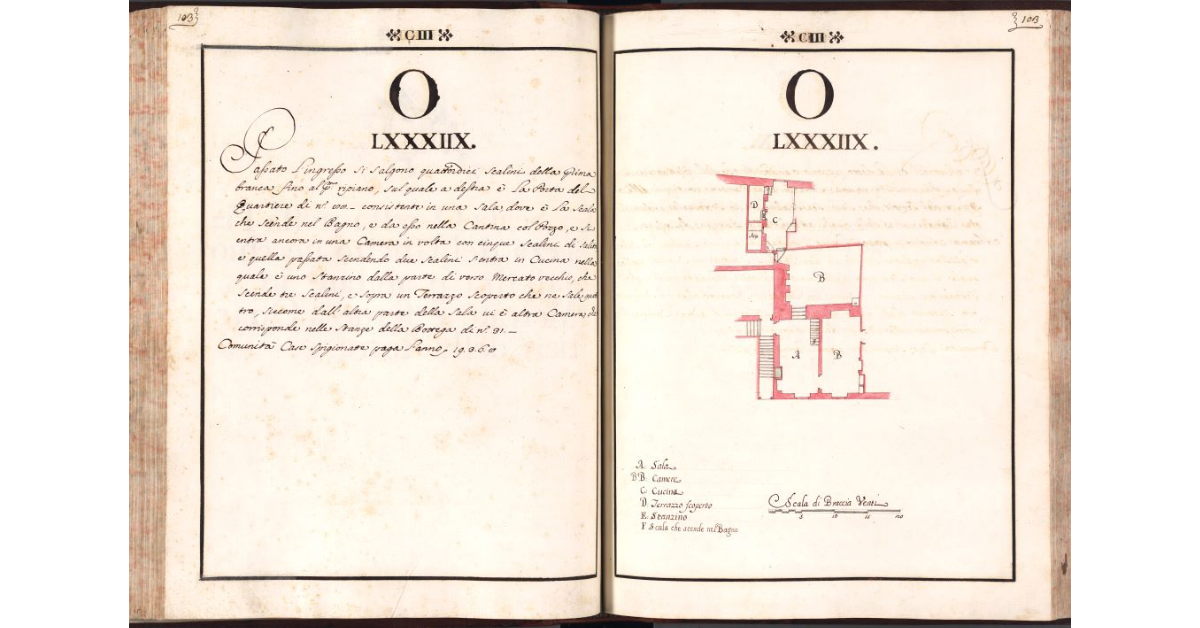 103
CIII
O
LXXXIIX.
Passato l'ingresso si salgono quattordici scalini della prima
branca fino al p.º ripiano, sul quale a destra è la Porta del
Quartiere di n.º 100.— consistente in una sala, dove è la scala
che scende nel Bagno, e da esso nella Cantina col Pozzo, e si
entra ancora in una Camera in volta con cinque scalini di salita
e quella passata scendendo due scalini s'entra in Cucina nella
quale è uno stanzino dalla parte di verso Mercato vecchio, che
scende tre scalini, e sopra un Terrazzo scoperto che ne sale quat
tro, siccome dall'altra parte della sala vi è altra Camera che
corrisponde nelle stanze della Bottega di n.º 91.—
Comunità Case spigionate paga l'anno, 19.3.6.8
103
CIII
O
LXXXIIX.
D
C
B
A
B
A. Sala
BB. Camere
C. Cucina
D. Terrazzo scoperto
E. Stanzino
F. Scala che scende nel Bagno
Scala di Braccia Venti
5 10 15 20